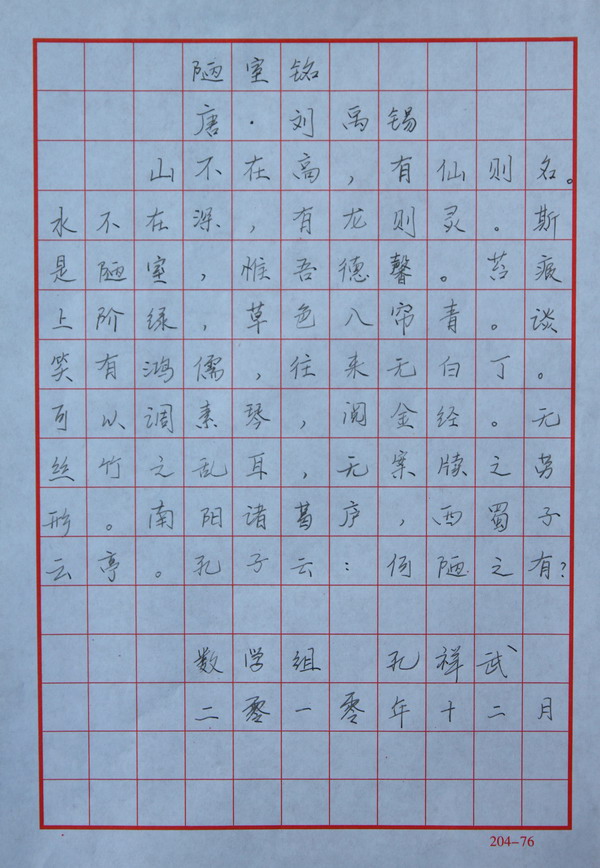 陋室铭
唐·刘禹锡
山不在高,有仙则名。
水不在深,有龙则灵。斯
是陋室,惟吾德馨。苔痕
上阶绿,草色入帘青。谈
笑有鸿儒,往来无白丁。
可以调素琴,阅金经。无
丝竹之乱耳,无案牍之劳
形。南阳诸葛庐,西蜀子
云亭。孔子云:何陋之有?
数学组 孔祥武
二零一零年十二月
204-76